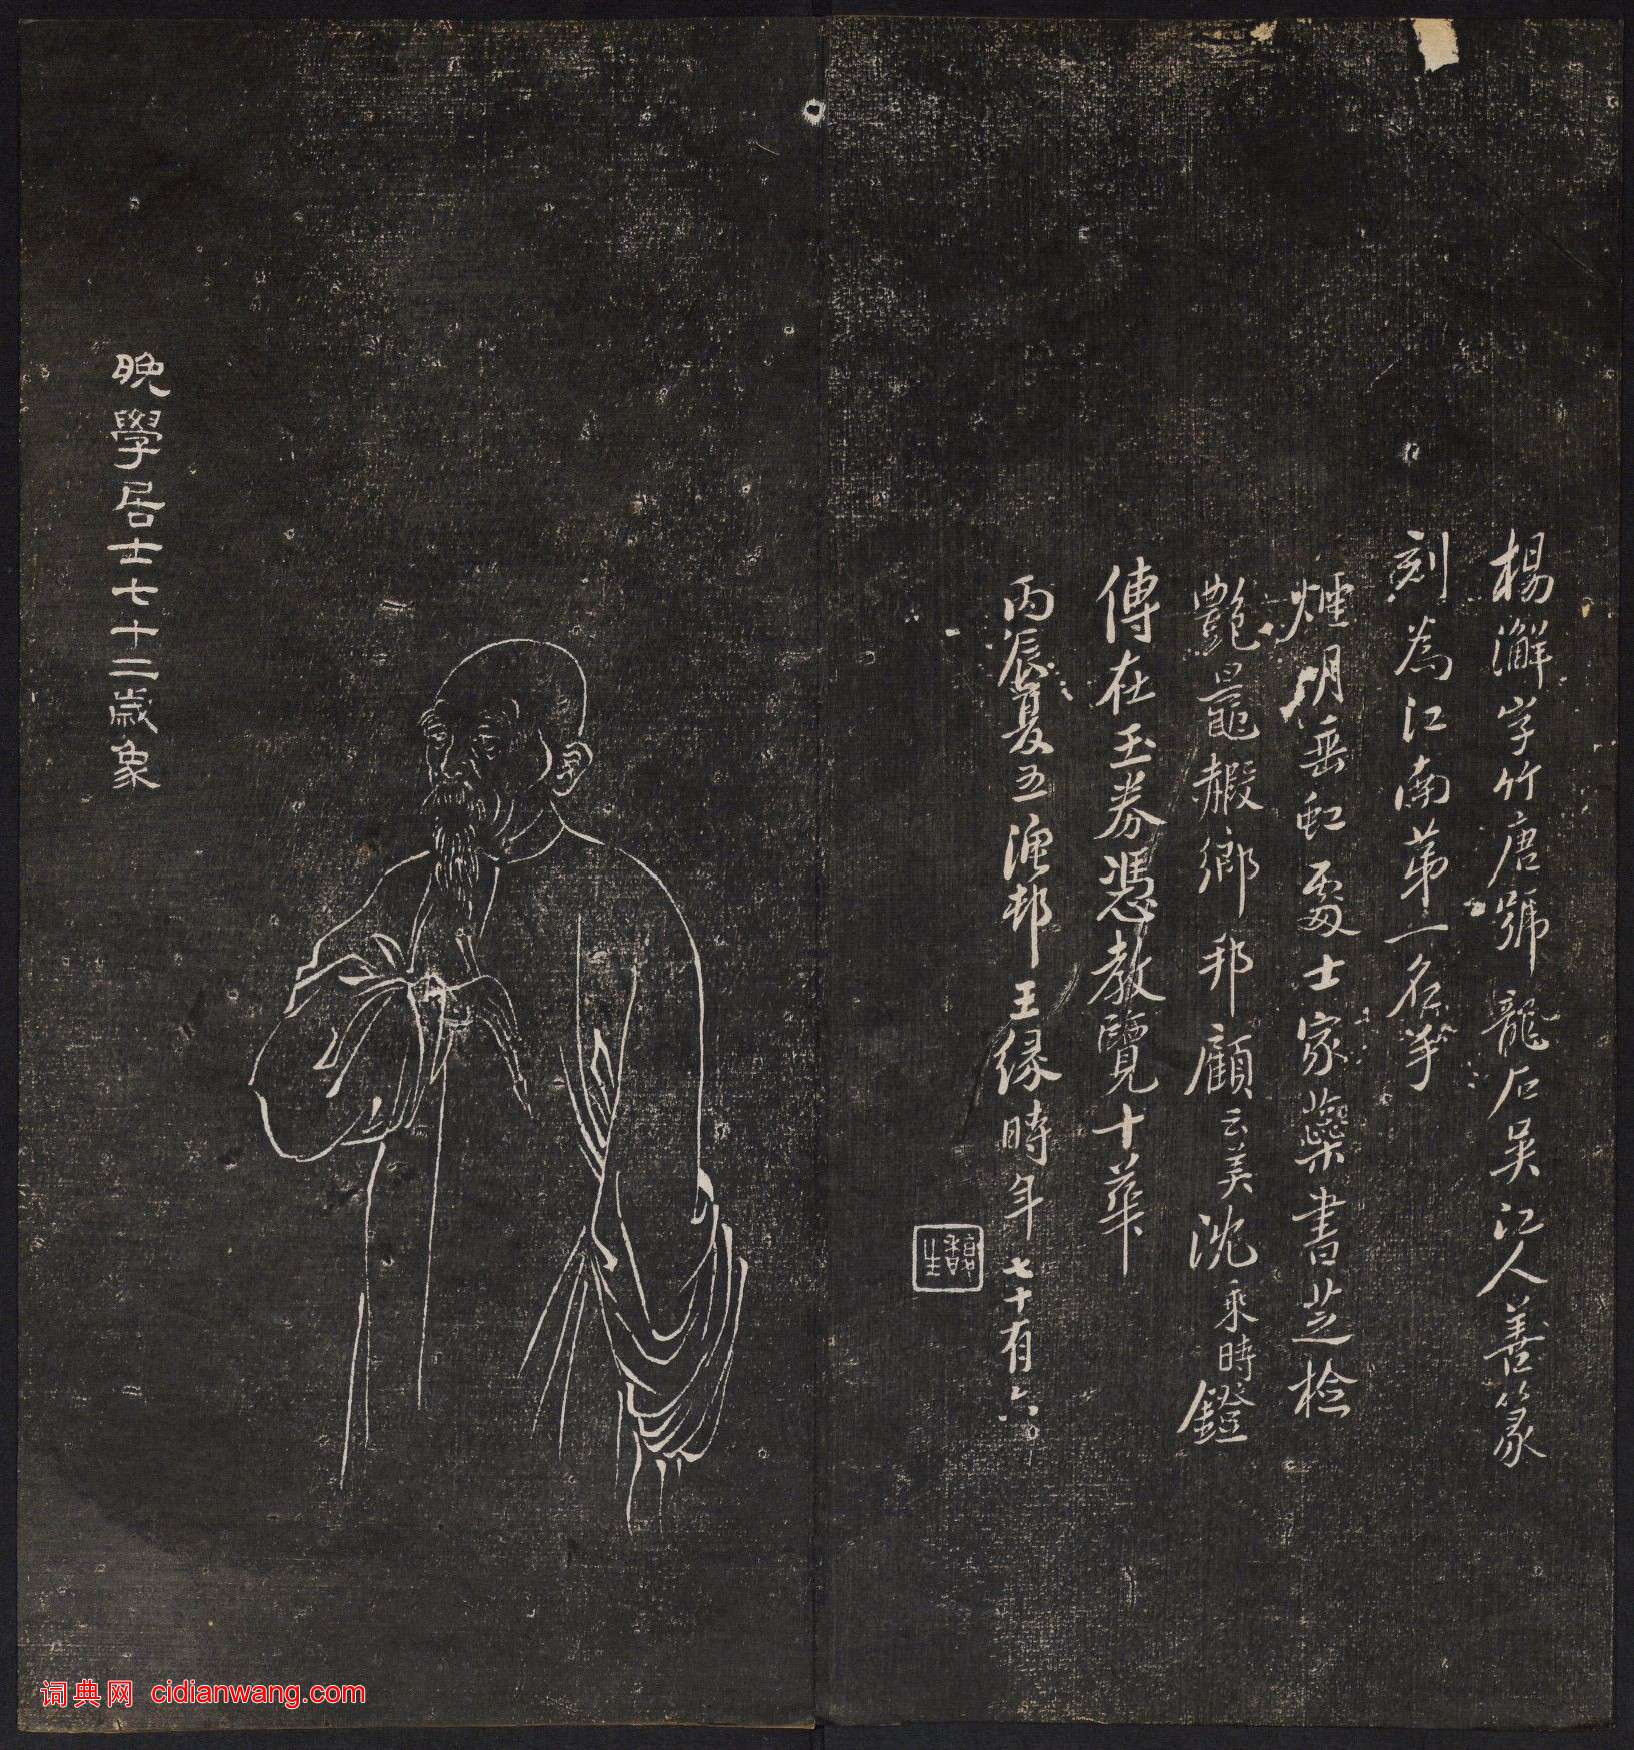 楊澥字竹唐號龍石吳江人善篆
刻為江南第一名手
煙明垂虹處士家蘂書芝檢
艷鼂赮鄉邦顧云美沈乘時鐙
傳在玉券憑教覽十華
丙辰夏五漁邨王緣時年七十有六
馥生
晚學居士七十二歲象
词典网 cidianwang.com